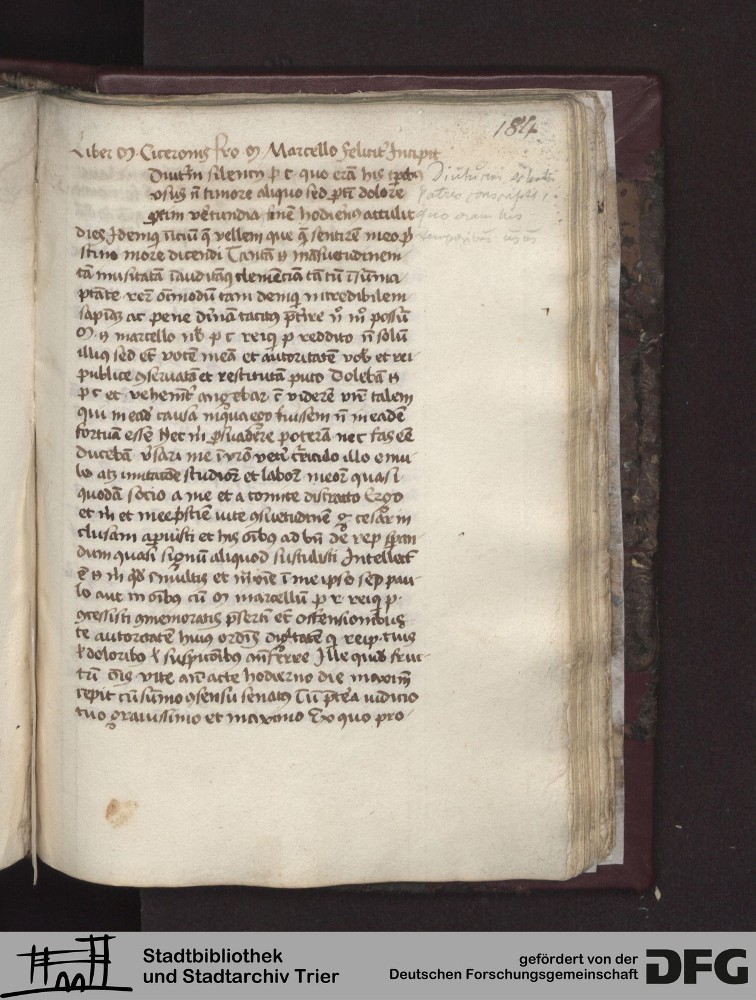 184
Liber M. Ciceronis pro M. Marcello feliciter Incipit
Diuturni silencii p c quo eram his tpibus
usus n timore aliquo sed ptim dolore
ptim verecundia finem hodiernus attulit
dies Idemq inicium q vellem que q sentirem meo p
stino more dicendi Tantam n mansuetudinem
tam inusitatam inauditamq clemenciam tantum in summa
ptate rerum omnium modum tam deniq incredibilem
sapiam ac pene divinam tacitus preterire n m possum
M. n marcello vob p c reiq p reddito n solum
illius sed et vocem meam et autoritatem vob et rei
publice conservatam et restitutam puto Dolebam n
p c et vehementer angebar cum viderem virum talem
qui in eadem causa in qua ego fuissem n in eadem
fortuna esse Nec m persuadere poteram nec fas esse
ducebam versari me in vetri curriculo illo emu
lo atq imitatore studiorum et laborum meorum quasi
quodam socio a me et a comite distracto Ergo
et m et mee pristine vite consuetudinem g cesar in
clusam aperuisti et his omibus ad bn de rep speran
dum quasi signum aliquod sustulisti Intellectum
e n m quidem in multis et in me ipso sed pau
lo ante in omnibus cum M marcellum p r reiq p
concessisti commemoratis presertim et offensionibus
te autoritatem huius ordinis dignitatem q reip tuis
l doloribus l suspicionibus anteferre Ille quidem fruc
tum omnis vite ante acte hodierno die maximum
cepit cum summo consensu senatus tum preterea iudicio
tuo gravissimo et maximo Ex quo pro
Diuturni silentii
Patres conscripti
quo eram his
temporibus usus
Stadtbibliothek
und Stadtarchiv Trier
gefördert von der
Deutschen Forschungsgemeinschaft
DFG